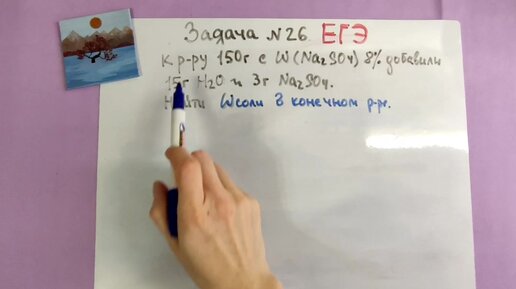 Задача №26 ЕГЭ
К р-ру 150г с W(Na₂SO₄) 8% добавили
15г H₂O и 3г Na₂SO₄.
Найти Wсоли в конечном р-ре.